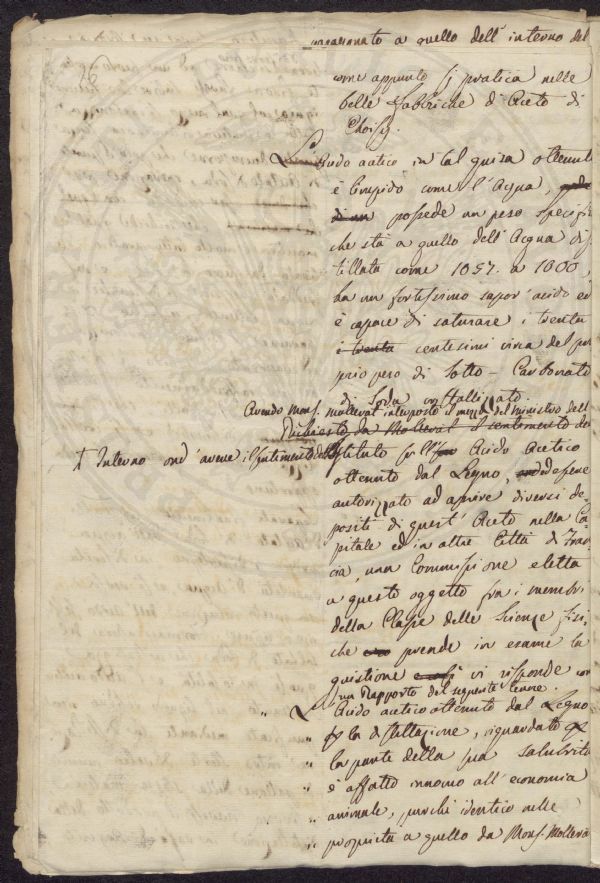 a quello dell' interno del
come appunto si pratica nelle
belle Fabbriche d' Aceto di
Choisy.
L' Acido acetico in tal guisa ottenuto
è limpido come l' Acqua,
possede un peso specifi
che stà a quello dell' Acqua dis
tillata come 1057. a 1000,
ha un fortissimo sapor' acido ed
è capace di saturare i trenta
i trenta centesimi circa del pro
prio peso di Sotto-Carbonato
di Soda cristallizzato.
Avendo Mons. Mollerat interposto il mezzo del ministro dell
Richiesto da Mollerat il sentimento del
Interno ond' avere il sentimento dell' Istituto sull' Acido Acetico
ottenuto dal Legno, ed essere
autorizzato ad aprire diversi de
positi di quest' Aceto nella Ca
pitale ed in altre Città di Fran
cia, una Commissione eletta
a questo oggetto fra i membri
della Classe delle Scienze fisi
che prende in esame la
quistione vi risponde con
un Rapporto del seguente tenore.
" L' Acido acetico ottenuto dal Legno
" la distillazione, riguardato
" la parte della sua salubrità
" è affatto innocuo all' economia
" animale, purchè identico nelle
" proprietà a quello da Mons. Mollera